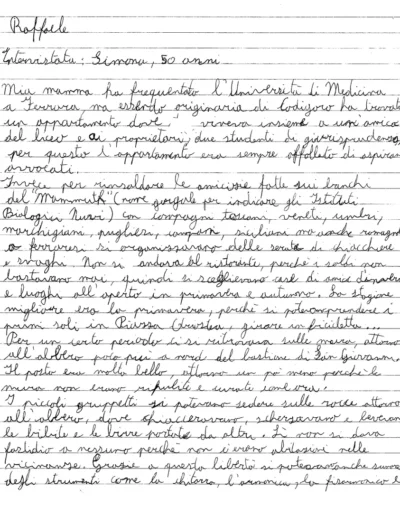 Raffaele
Intervistata: Simona, 50 anni
Mia mamma ha frequentato l'Università di Medicina
a Ferrara, ma essendo originaria di Codigoro ha trovato
un appartamento dove viveva insieme a un'amica
del liceo e ai proprietari, due studenti di giurisprudenza,
per questo l'appartamento era sempre affollato di aspiranti
avvocati.
Invece per rinsaldare le amicizie fatte sui banchi
del "Mammuth" (nome gergale per indicare gli Istituti
Biologici Nuovi) con compagni toscani, veneti, umbri,
marchigiani, pugliesi, campani, siciliani ma anche romagnoli
o ferraresi si organizzavano delle serate di chiacchiere
e svaghi. Non si andava al ristorante, perché i soldi non
bastavano mai, quindi si sceglievano case di amici d'inverno
e luoghi all'aperto in primavera e autunno. La stagione
migliore era la primavera, perché si poteva prendere i
primi soli in Piazza Ariostea, girare in bicicletta...
Per un certo periodo ci si ritrovava sulle mura, attorno
all'albero poco più a nord del bastione di San Giovanni.
Il posto era molto bello, attorno un po' meno perché le
mura non erano ripulite e curate come ora.
I piccoli gruppetti si potevano sedere sulle rocce attorno
all'albero, dove chiacchieravano, scherzavano e bevevano
le bibite e le birre portate da altri. Lì non si dava
fastidio a nessuno perché non c'erano abitazioni nelle
vicinanze. Grazie a questa libertà si potevano anche suonare
degli strumenti come la chitarra, l'armonica, la fisarmonica e